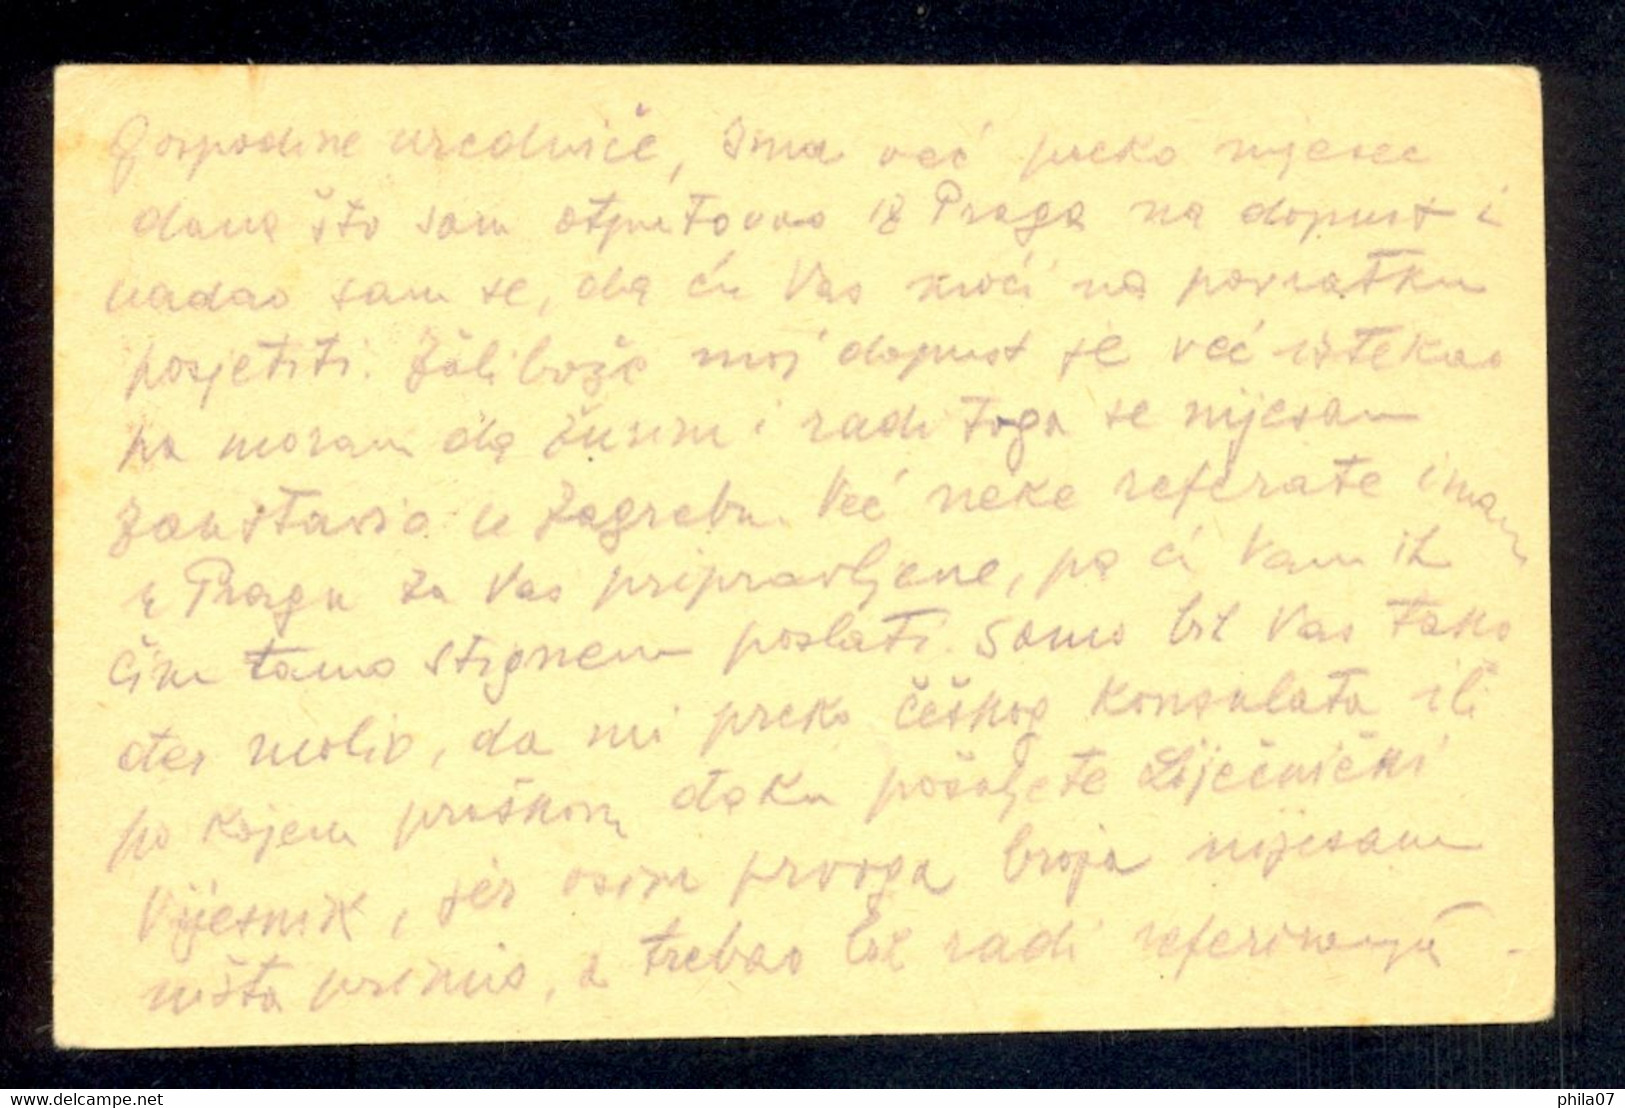 Gospodine uredniče, Ima već preko mjesec
dana što sam otputovao iz Praga na dopust i
nadao sam se, da ću Vas moći na povratku
posjetiti. Žalibože moj dopust je već istekao
pa moram da žurim i radi toga se nijesam
zaustavio u Zagrebu. Već neke referate imam
u Pragu za Vas pripravljene, pa ću Vam ih
čim tamo stignem poslati. Samo bih Vas tako
đer molio, da mi preko češkog konsulata ili
po kojem praškom đaku pošaljete Liječnički
Vijesnik, jer osim prvoga broja nijesam
ništa primio, a trebao bih radi referiranja -
www.delcampe.net
phila07